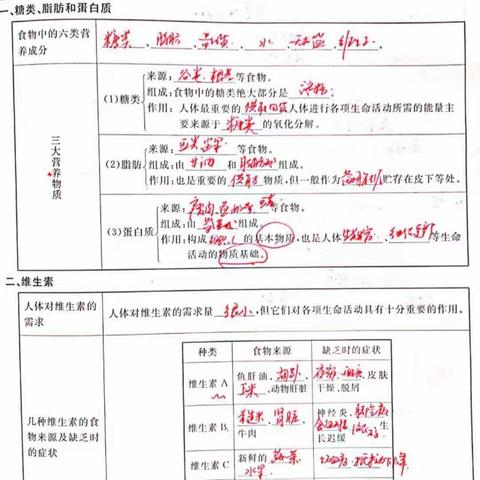 一、糖类、脂肪和蛋白质
食物中的六类营
养成分
糖类、脂肪、蛋白质、水、无机盐、维生素
三大营养物质
(1)糖类
来源:谷类、等食物。
组成:食物中的糖类绝大部分是淀粉。
作用:人体最重要的供能物质,人体进行各项生命活动所需的能量主
要来源于糖类的氧化分解。
(2)脂肪
来源:等食物。
组成:由甘油和脂肪酸组成。
作用:也是重要的供能物质,但一般作为贮存在皮下等处。
(3)蛋白质
来源:瘦肉、等食物。
组成:由组成。
作用:构成的基本物质,也是人体、等生命
活动的物质基础。
二、维生素
人体对维生素的
需求
人体对维生素的需求量很小,但它们对各项生命活动具有十分重要的作用。
几种维生素的食
物来源及缺乏时
的症状
种类 食物来源 缺乏时的症状
维生素A 鱼肝油、胡萝卜、玉米、动物肝脏 夜盲症、皮肤
干燥、脱屑
维生素B₁ 糙米、肾脏、
牛肉 神经炎、脚气病、生
长迟缓
维生素C 新鲜的蔬菜、
水果 坏血病、抵抗力下降